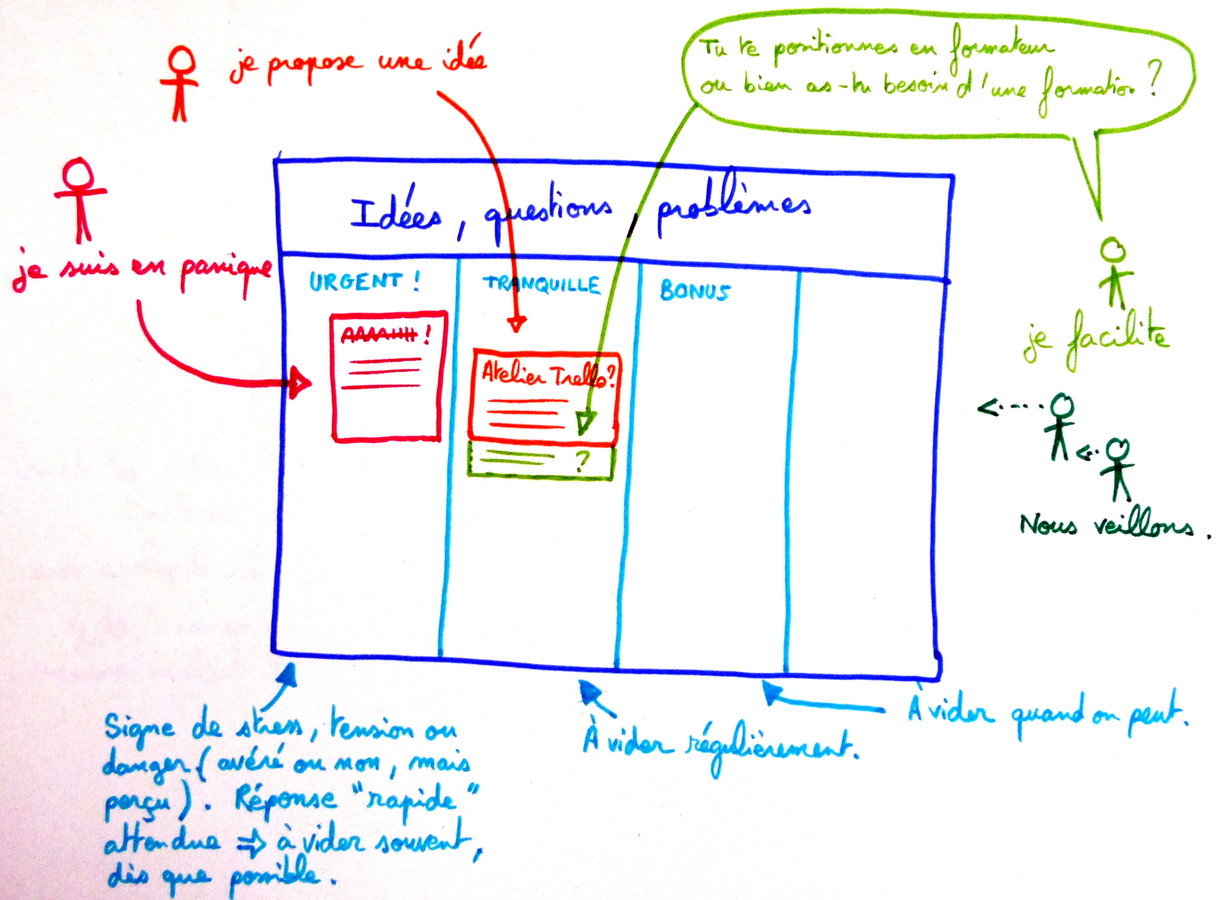 je propose une idée
Tu te positionnes en formateur
ou bien as-tu besoin d'une formation ?
je suis en panique
Idées, questions, problèmes
URGENT !
TRANQUILLE
BONUS
AAAAHHH !
Atelier Trello?
?
je facilite
Nous veillons.
Signe de stress, tension ou
danger (avéré ou non, mais
perçu). Réponse "rapide"
attendue => à vider souvent,
dès que possible.
À vider régulièrement.
À vider quand on peut.